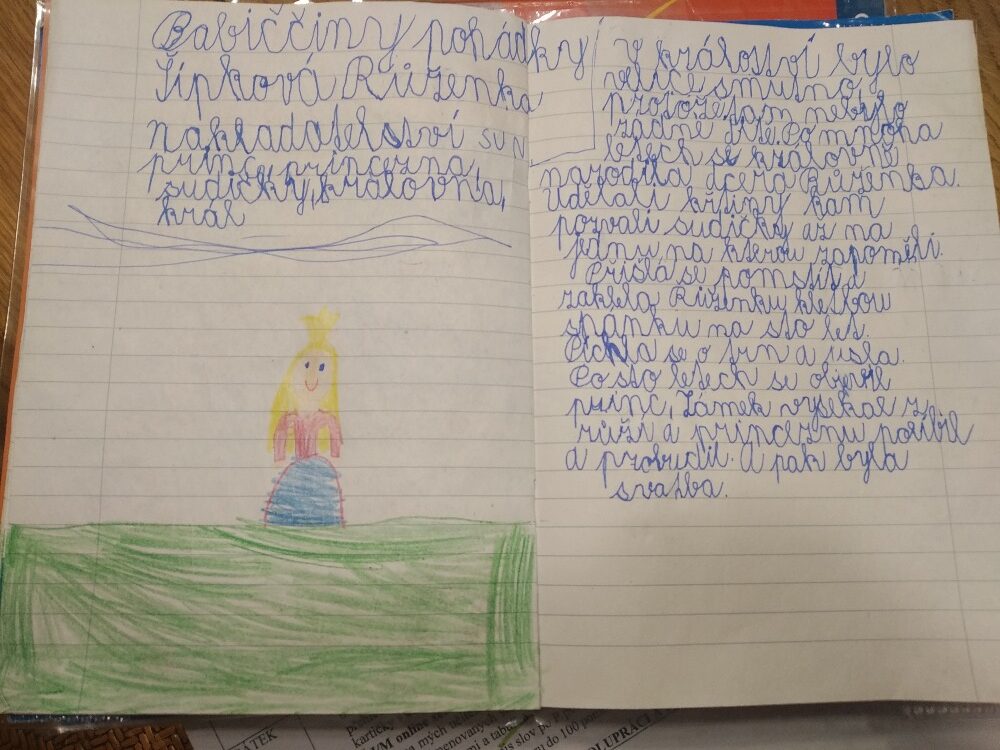 Babiččiny pohádky
Šípková Růženka
nakladatelství SUN
princ, princezna,
sudičky, královna,
král
V království bylo
velice smutno,
protože tam nebylo
žádné dítě. Po mnoha
letech se královně
narodila dcera Růženka.
Udělali křtiny kam
pozvali sudičky až na
jednu, na kterou zapoměli.
Přišla se pomstít a
zaklela Růženku kletbou
spánku na sto let.
Píchla se o trn a usla.
Po sto letech se objevil
princ, Zámek vysekal z
růží a princeznu políbil
a probudil. A pak byla
svatba.
ÁTEK
kartičk
VM online
a mých
menovaných
mi a tabu
is slov po
m do 100 por
OLUPRÁCI A